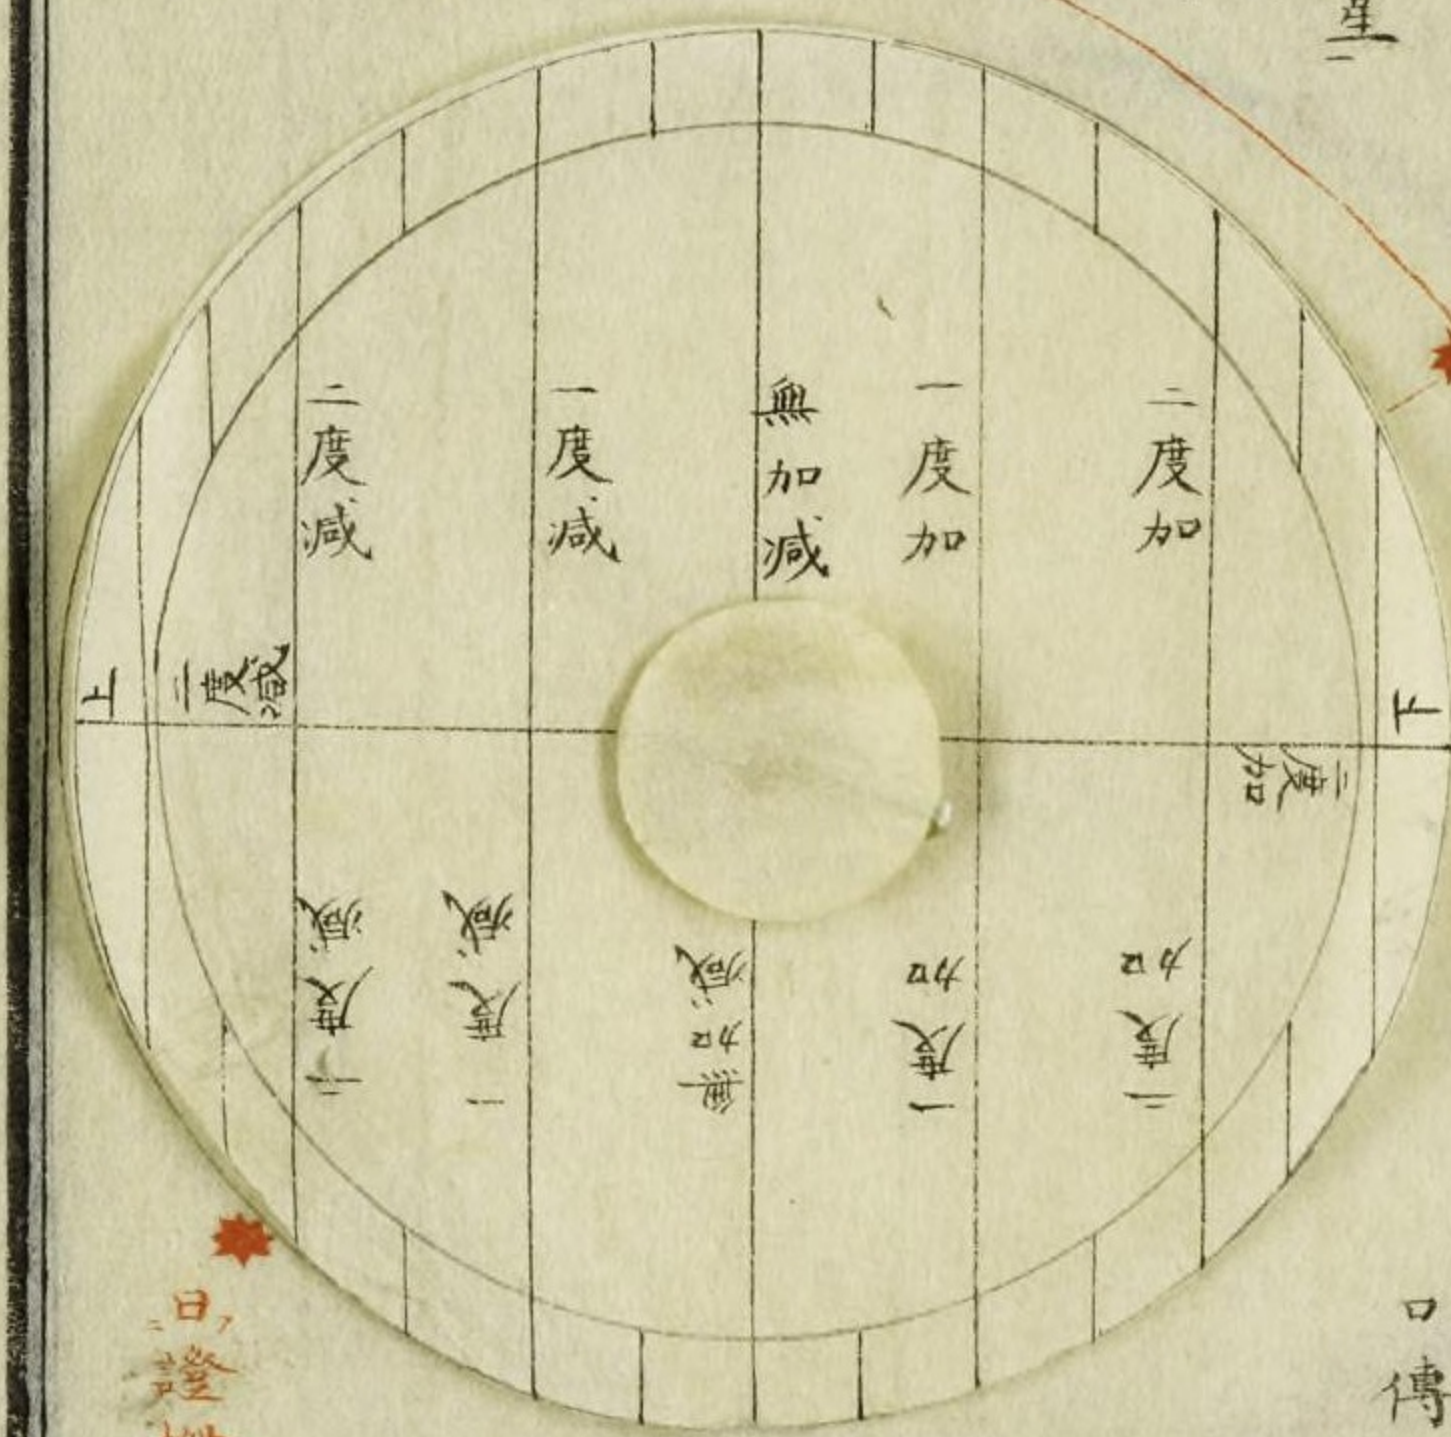 星
二度加
一度加
無加減
一度減
二度減
上
三度減
下
三度加
二度加
一度加
無加減
一度減
二度減
口傳
日
證